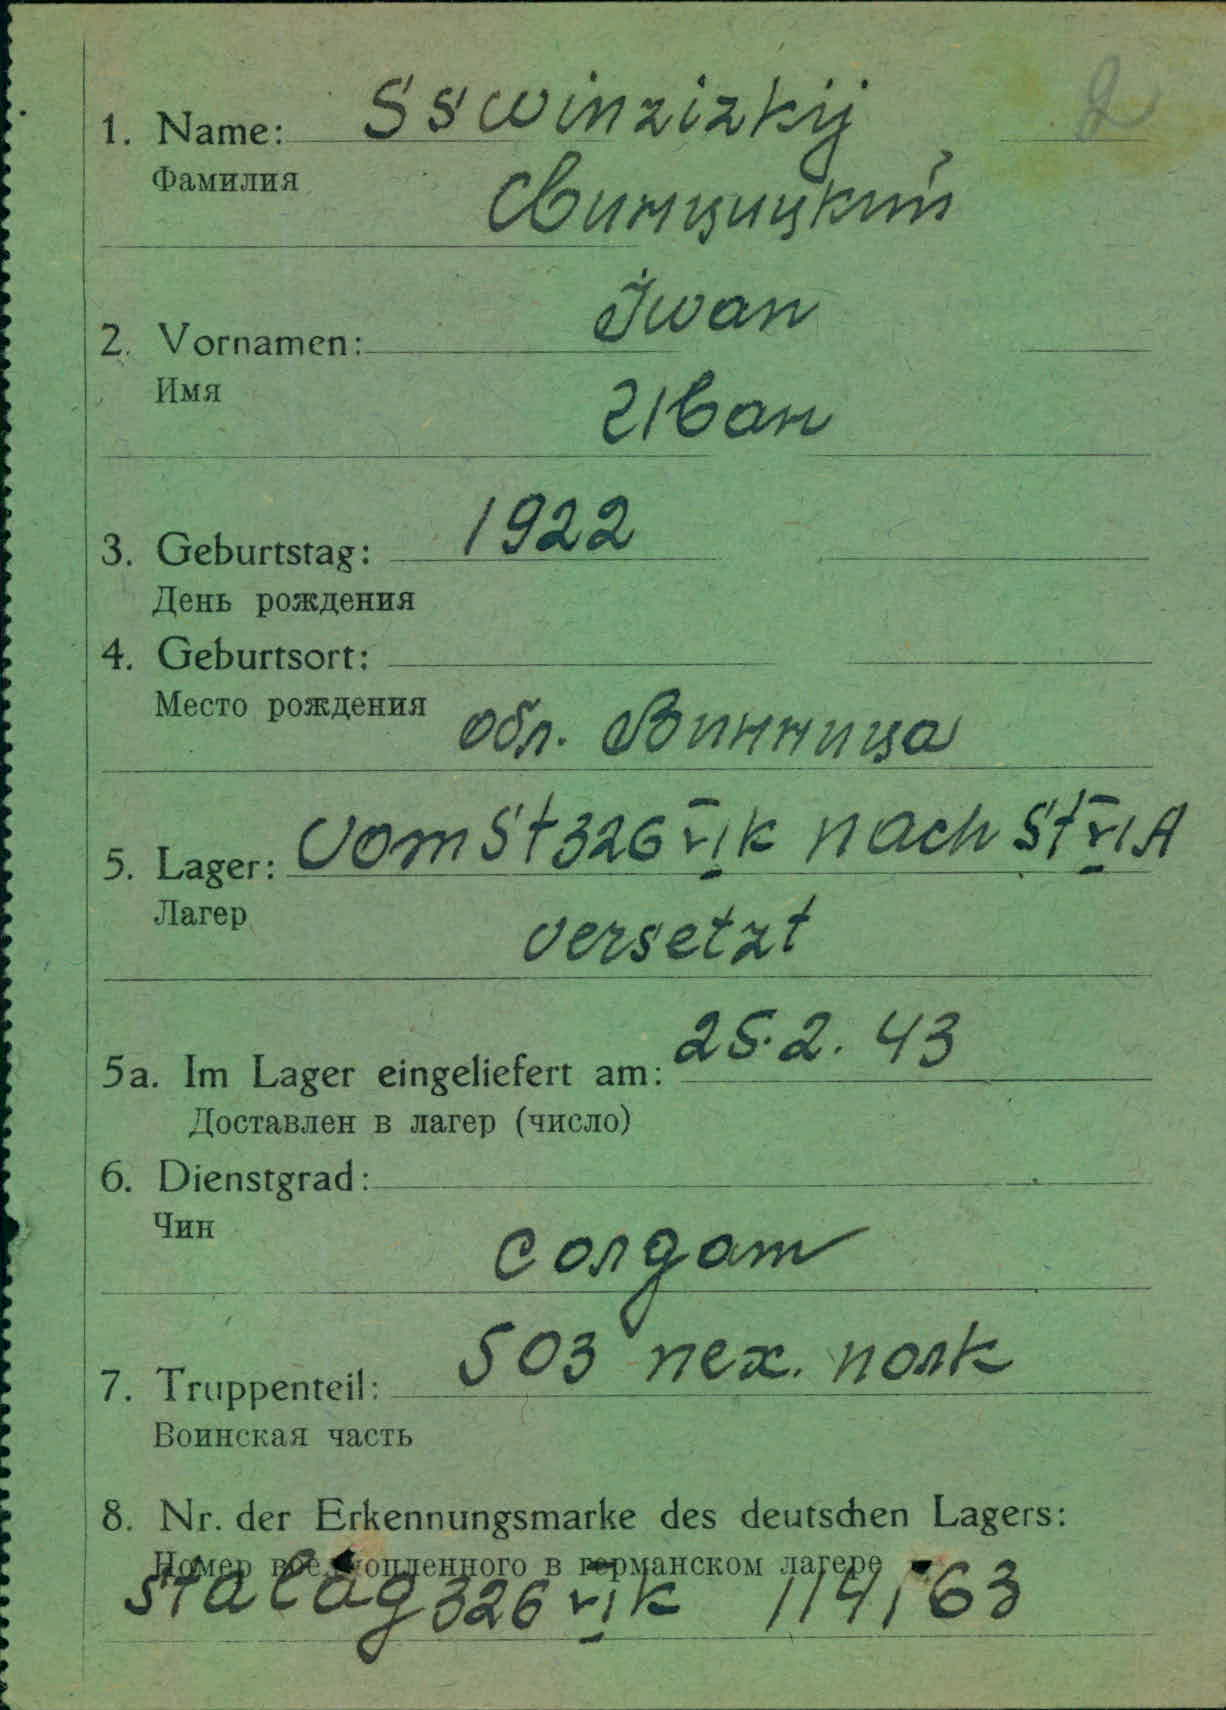 1. Name: Sswinzizkij 2
Фамилия
Свинцицкий
2. Vornamen: Iwan
Имя
Иван
3. Geburtstag: 1922
День рождения
4. Geburtsort:
Место рождения обл. Винница
5. Lager: vom St 326 VI K nach St VI A
Лагер
versetzt
5a. Im Lager eingeliefert am: 25.2.43
Доставлен в лагер (число)
6. Dienstgrad:
Чин
солдат
7. Truppenteil: 503 пех. полк
Воинская часть
8. Nr. der Erkennungsmarke des deutschen Lagers:
Номер военнопленного в германском лагере
Stalag 326 VI K 114163